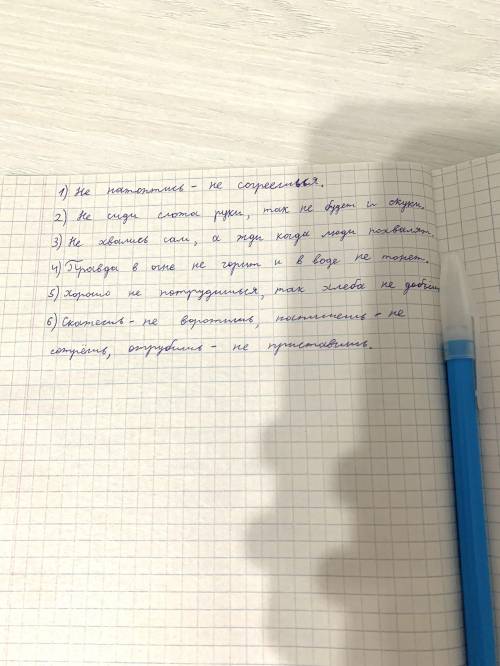 1) Не натопишь - не согреешься.
2) Не сиди сложа руки, так не будет и скуки.
3) Не хвались сам, а жди когда люди похвалят.
4) Правда в огне не горит и в воде не тонет.
5) Хорошо не потрудишься, так хлеба не
6) Скажешь - не воротишь, напишешь - не
сотрёшь, отрубишь - не приставишь.